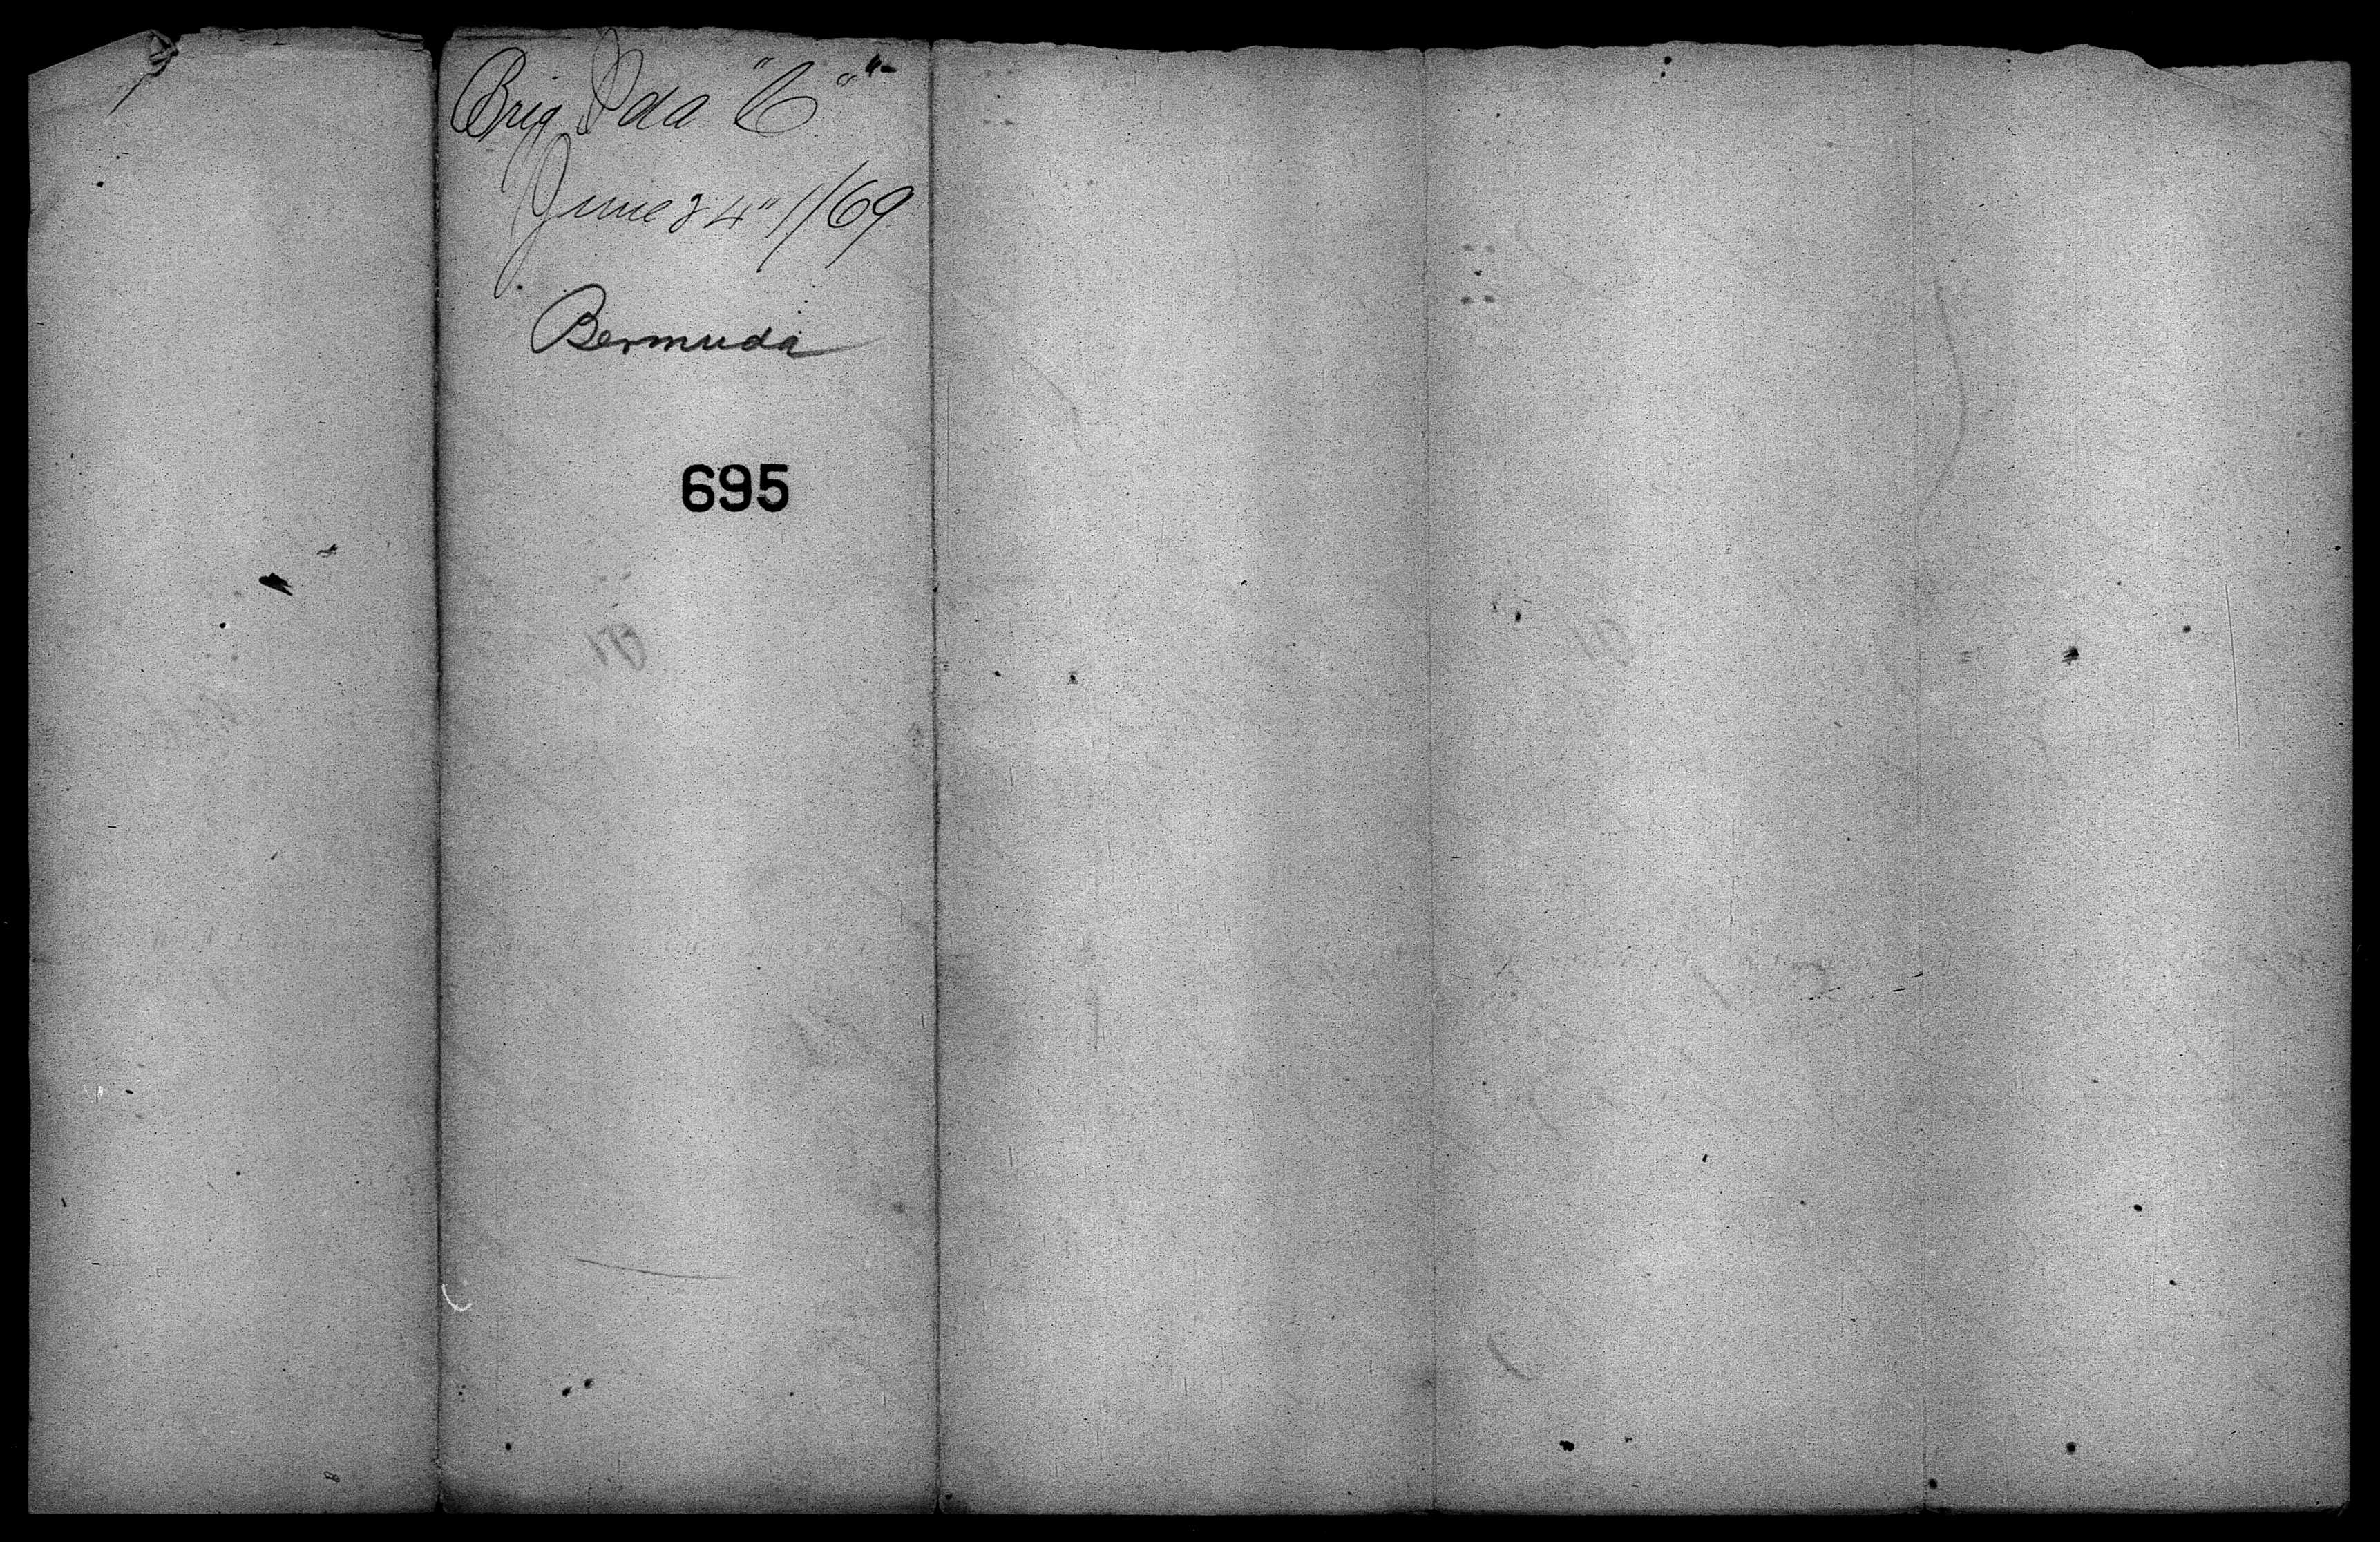 Brig Ida "C"
June 24" 1/69
Bermuda
695